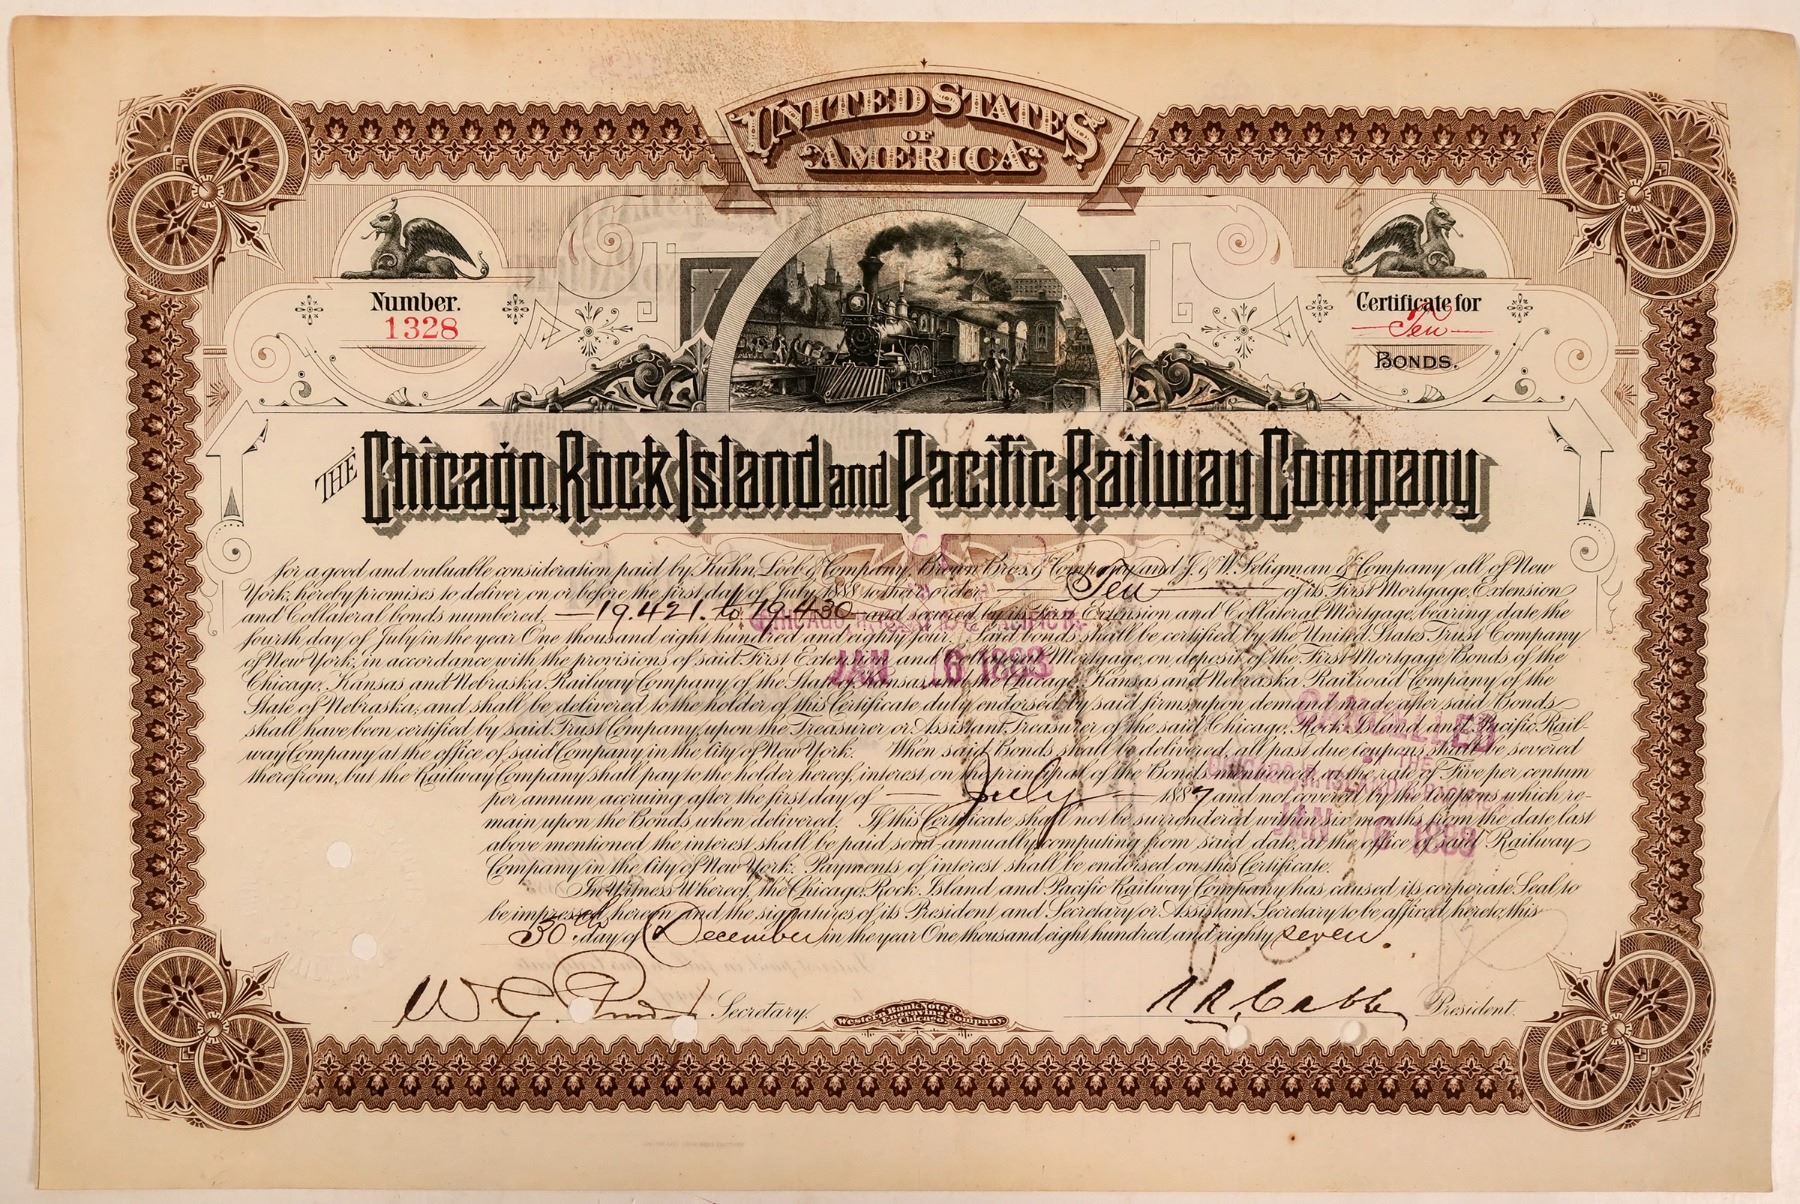 UNITED STATES
OF
AMERICA
Number.
1328
Certificate for
Ten
BONDS.
THE Chicago, Rock Island and Pacific Railway Company
for a good and valuable consideration paid by Kuhn, Loeb & Company, Brown Bros. & Company and J. & W. Seligman & Company all of New
York, hereby promises to deliver on or before the first day of July 1888 to their order Ten of its First Mortgage, Extension
and Collateral bonds numbered 19.421. to 19.430 and secured by its First Extension and Collateral Mortgage, bearing date the
fourth day of July in the year One thousand eight hundred and eighty four. Said bonds shall be certified by the United States Trust Company
of New York, in accordance with the provisions of said First Extension and Collateral Mortgage, on deposit of the First Mortgage Bonds of the
Chicago, Kansas and Nebraska Railway Company of the State of Kansas, and the Chicago, Kansas and Nebraska Railroad Company of the
State of Nebraska; and shall be delivered to the holder of this Certificate duly endorsed by said firms upon demand made after said Bonds
shall have been certified by said Trust Company, upon the Treasurer or Assistant Treasurer of the said Chicago, Rock Island and Pacific Rail-
way Company at the office of said Company in the City of New York. When said Bonds shall be delivered, all past due coupons shall be severed
therefrom, but the Railway Company shall pay to the holder hereof, interest on the principal of the Bonds when delivered, at the rate of Five per centum
per annum accruing after the first day of July 1887 and not covered by the coupons which re-
main upon the Bonds when delivered. If this Certificate shall not be surrendered within six months from the date last
above mentioned the interest shall be paid semi-annually computing from said date, at the office of said Railway
Company in the City of New York. Payments of interest shall be endorsed on this Certificate.
In Witness Whereof, the Chicago, Rock Island and Pacific Railway Company has caused its corporate Seal to
be impressed hereon and the signatures of its President and Secretary or Assistant Secretary to be affixed hereto, this
30th day of December in the year One thousand eight hundred and eighty seven.
CHICAGO, R. ISLAND & PACIFIC R.
JAN 6 1893
CANCELLED
BY THE
CHICAGO, R. ISLAND & PACIFIC R.
JAN 6 1893
W G Purdy Secretary.
R. R. Cable President.
Western Bank Note &
Engraving Company
Chicago